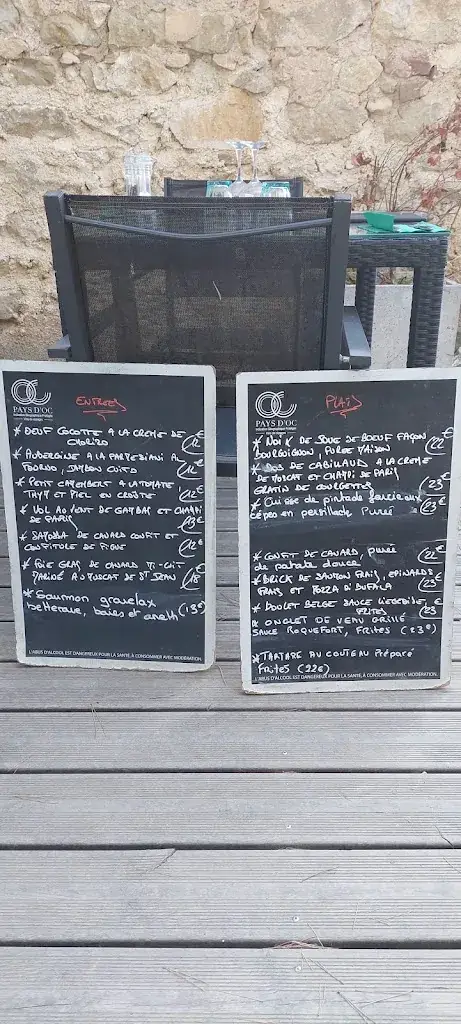 PAYS D'OC
ENTREES
* OEUF COCOTTE A LA CREME DE
CHORIZO 12€
* AUBERGINE A LA PARMESIANI AL
FORNO, JAMBON CUIT 12€
* PETIT CAMEMBERT A LA TOMATE,
THYM ET MIEL EN CROÛTE 12€
* VOL AU VENT DE GAMBAS ET CHAMPI
DE PARIS 13€
* DE CANARD CONFIT ET
CONFITURE DE FIGUE 12€
* FOIE GRAS DE CANARD MI-CUIT
MARINÉ AU MUSCAT DE ST JEAN 18€
* Saumon gravelax
betterave, baies et aneth (13€)
L'ABUS D'ALCOOL EST DANGEREUX POUR LA SANTÉ, À CONSOMMER AVEC MODÉRATION.
PAYS D'OC
PLATS
* NOIX DE JOUE DE BOEUF FAÇON
BOURGUIGNON, PUREE MAISON 22€
* DOS DE CABILLAUD A LA CREME
DE MUSCAT ET CHAMPI DE PARIS
GRATIN DE COURGETTES 23€
* Cuisse de pintade farcie aux
cèpes en persillade Purée 23€
* CONFIT DE CANARD, purée
de patate douce 22€
* BRICK DE SAUMON FRAIS, EPINARDS
FRAIS ET MOZZA DI BUFALA 23€
* BOULET BELGE SAUCE LIEGEOISE
FRITES
* ONGLET DE VEAU GRILLÉ
SAUCE ROQUEFORT, FRITES (23€)
* TARTARE AU COUTEAU Préparé
Frites (22€)
L'ABUS D'ALCOOL EST DANGEREUX POUR LA SANTÉ, À CONSOMMER AVEC MODÉRATION.